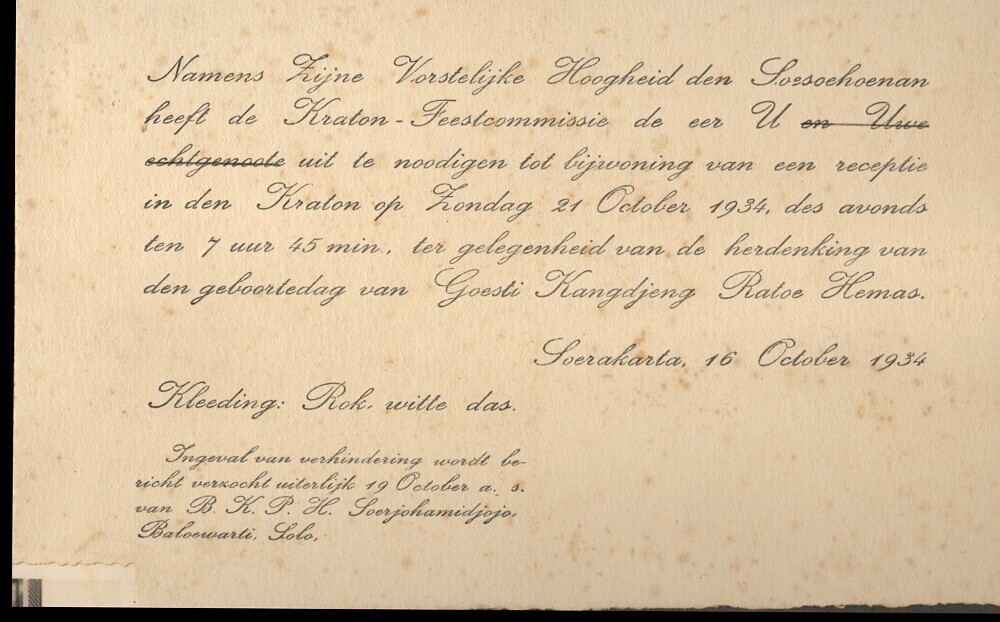 Namens Zijne Vorstelijke Hoogheid den Soesoehoenan
heeft de Kraton-Feestcommissie de eer U en Uwe
echtgenoote uit te noodigen tot bijwoning van een receptie
in den Kraton op Zondag 21 October 1934, des avonds
ten 7 uur 45 min., ter gelegenheid van de herdenking van
den geboortedag van Goesti Kangdjeng Ratoe Hemas.
Soerakarta, 16 October 1934
Kleeding: Rok, witte das.
Ingeval van verhindering wordt be-
richt verzocht uiterlijk 19 October a. s.
van B. K. P. H. Soerjohamidjojo,
Baloewarti, Solo.